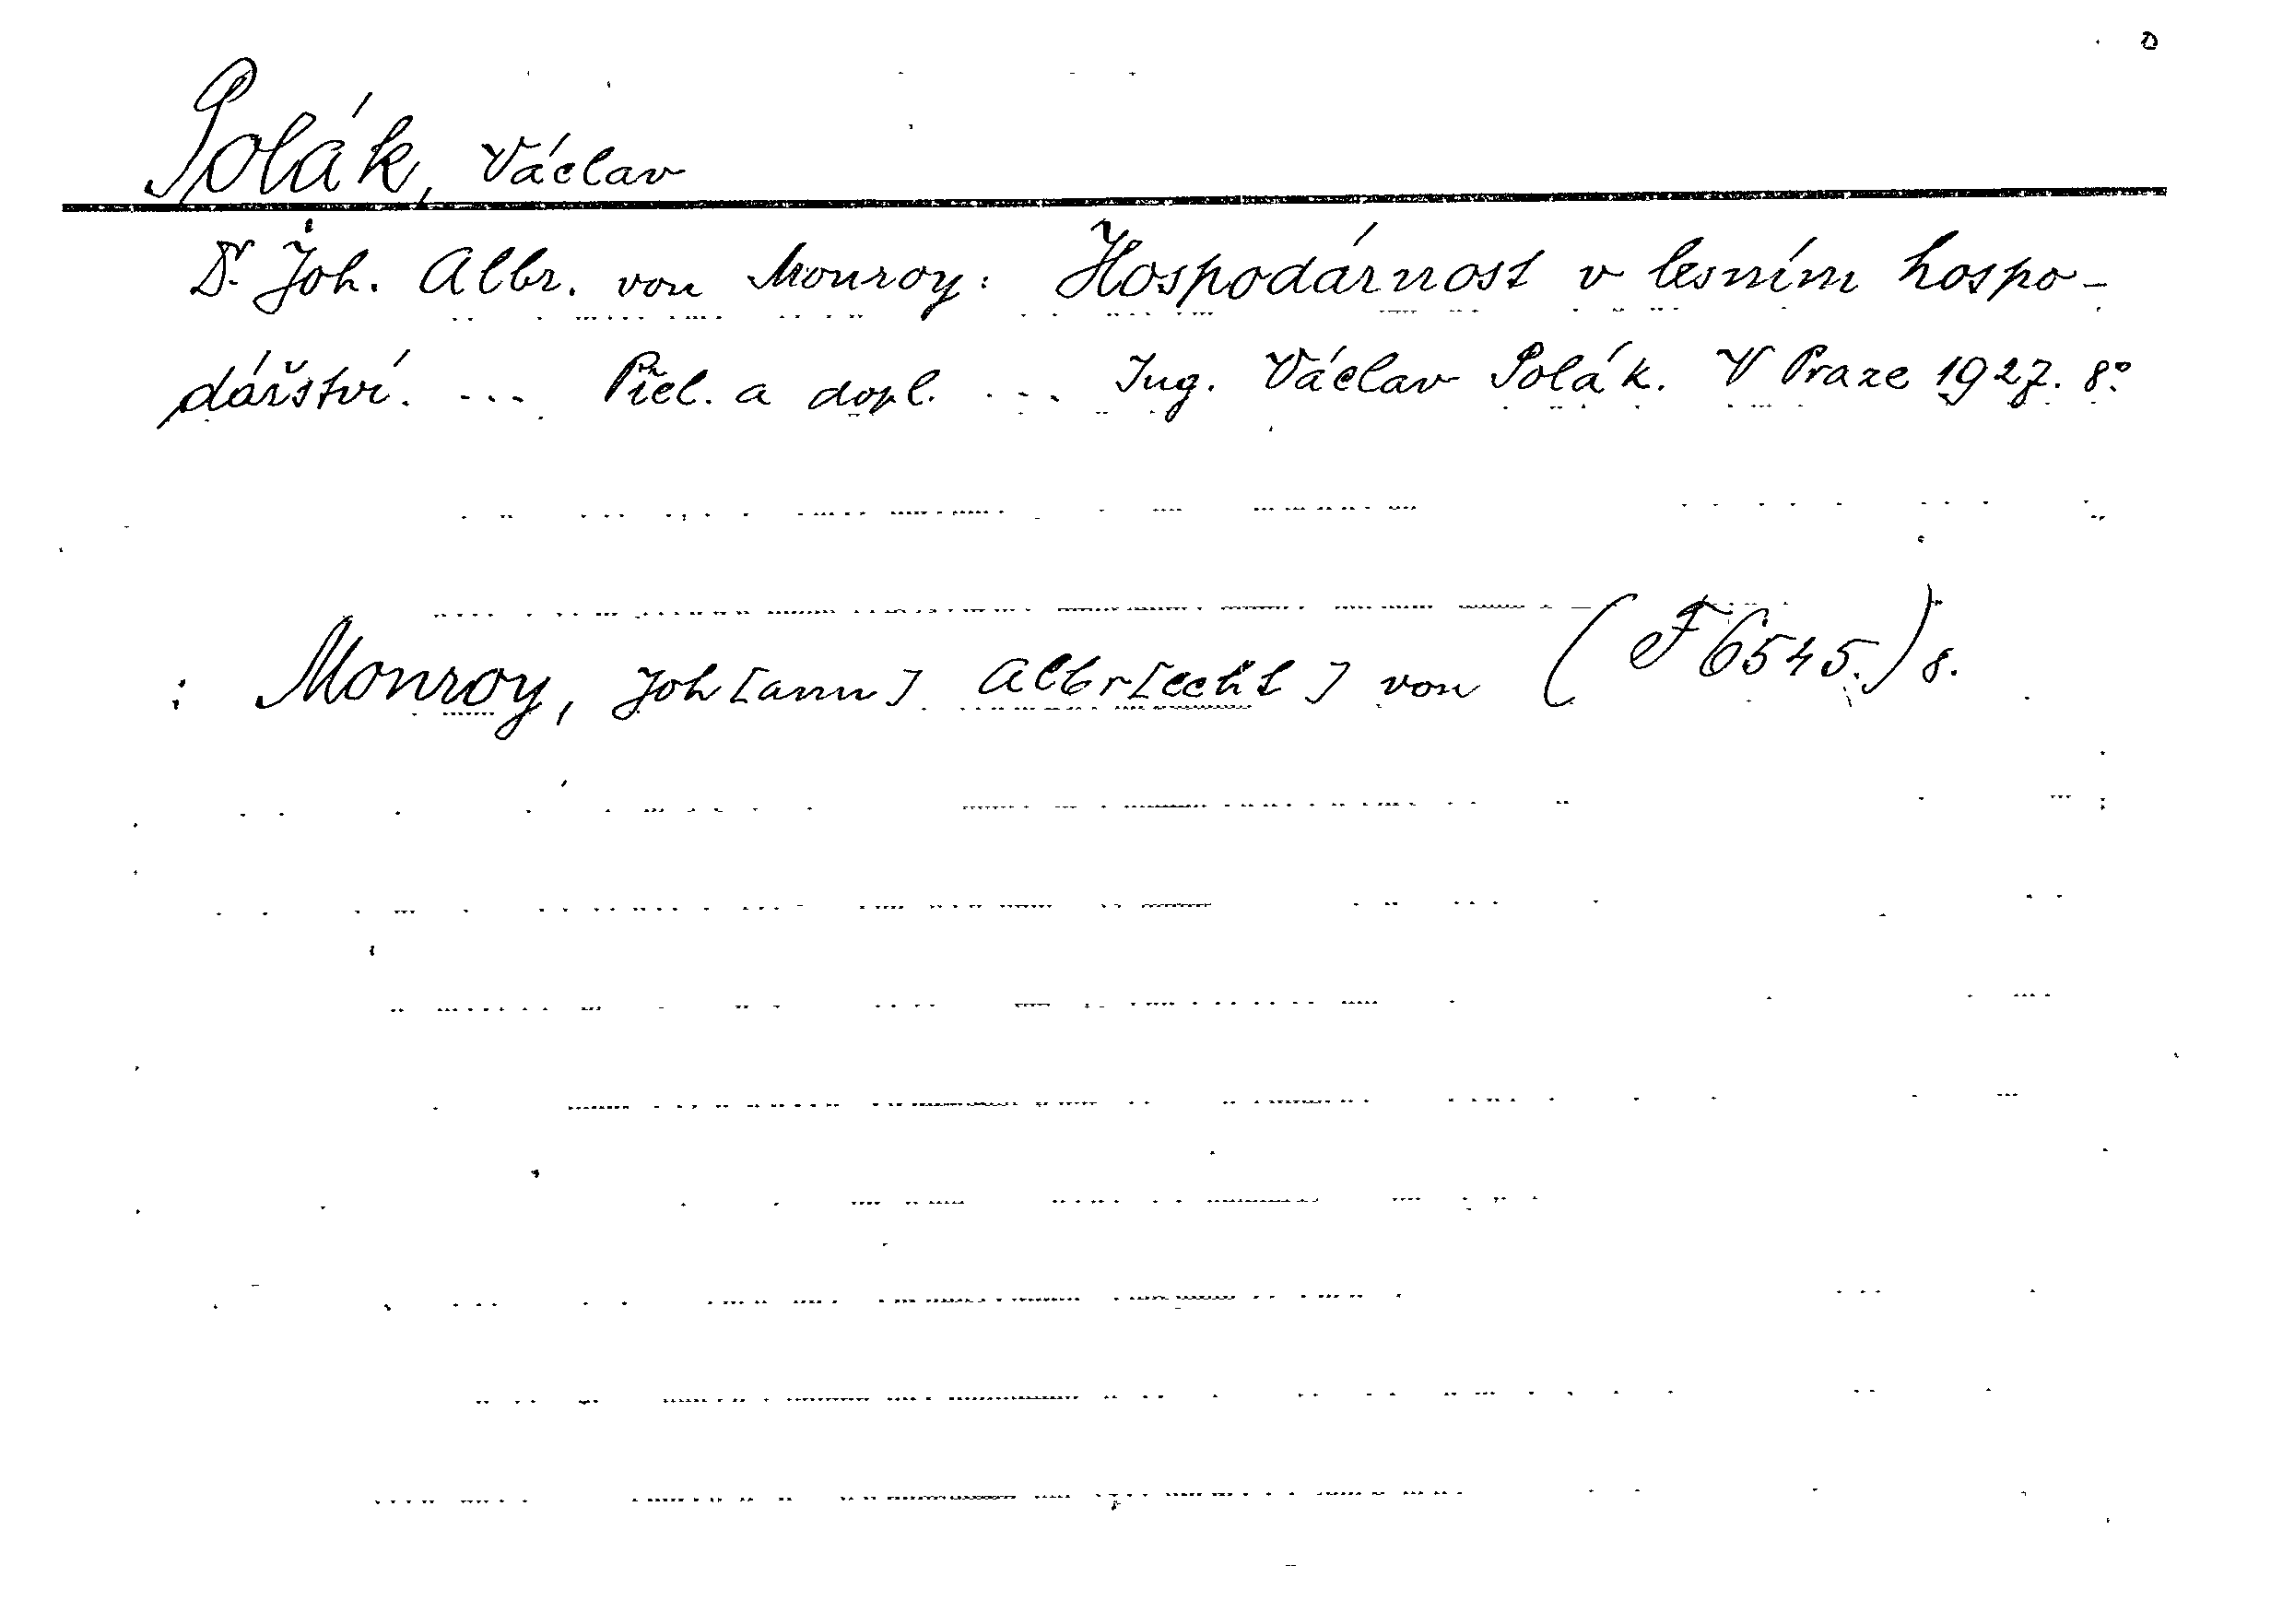 Polák, Václav
Dr. Joh. Albr. von Monroy: Hospodárnost v lesním hospo-
dářství. ... Přel. a dopl. ... Ing. Václav Polák. V Praze 1927. 8°
: Monroy, Joh[ann] Albr[echt] von (F 6545.) 8.